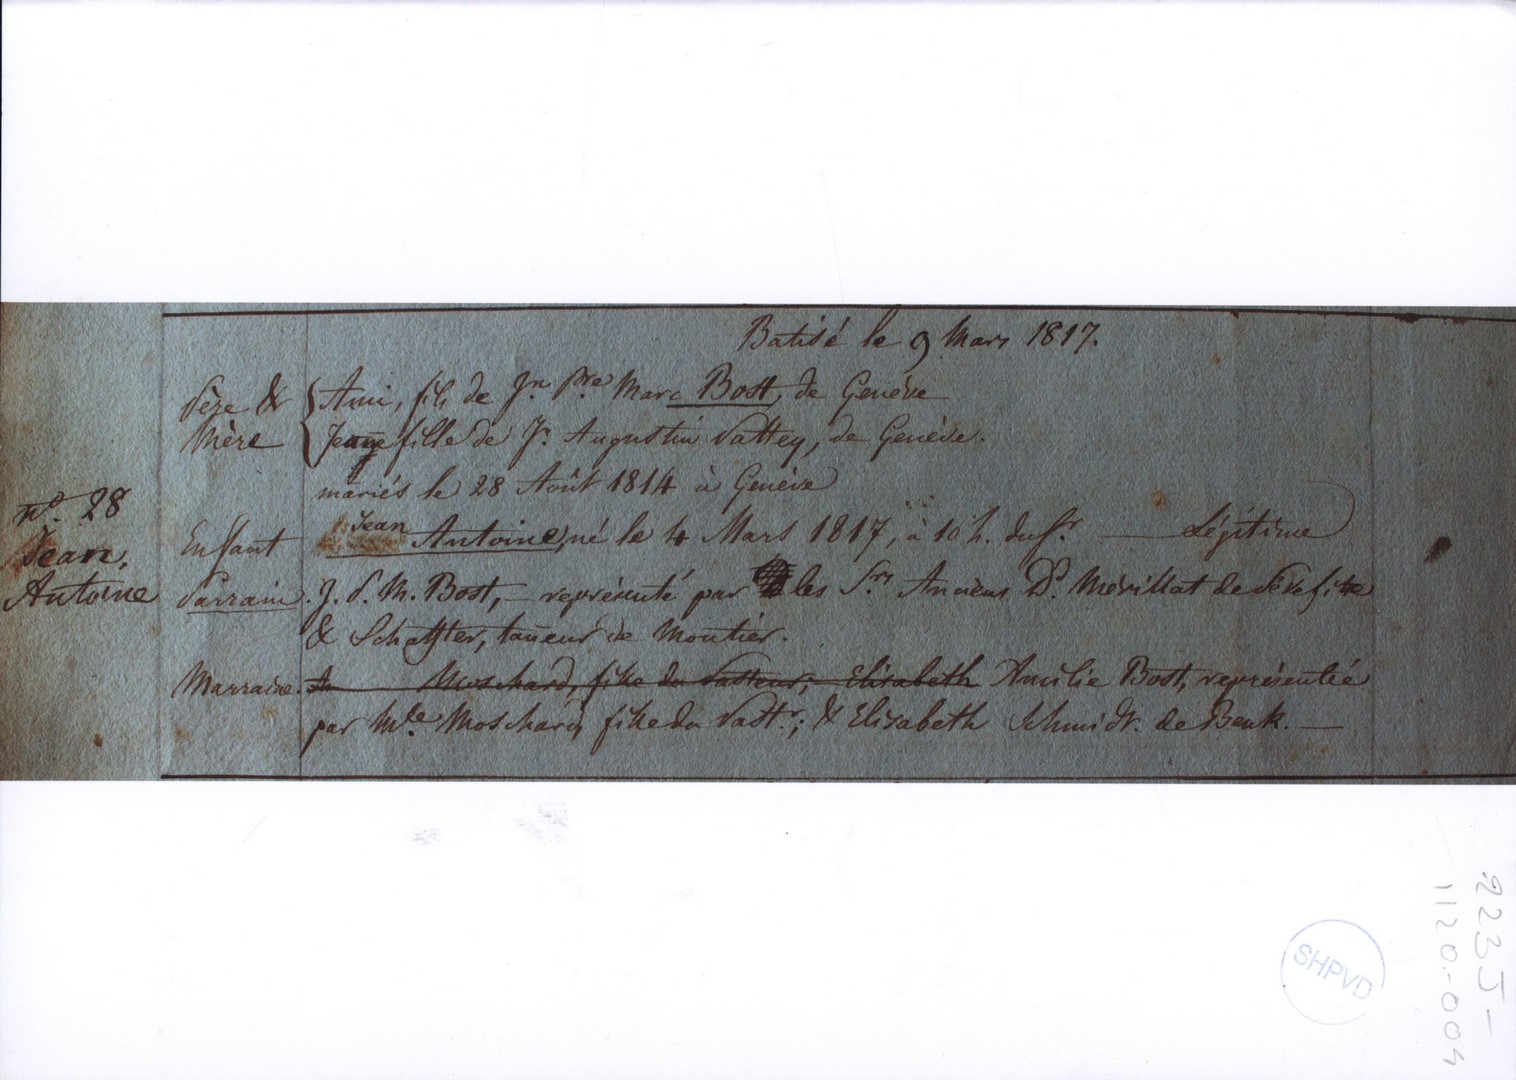 Batisé le 9 Mars 1817.
Père & Ami, fils de Jn. Pre. Marc Bost, de Genève
Mère Jeanne fille de Jn. Augustin Pattey, de Genève.
mariés le 28 Août 1814 à Genève
No. 28
Jean,
Antoine
Enfant Jean Antoine, né le 4 Mars 1817, à 10 h. du Légitime
Parrain. J. P. M. Bost, — représenté par les Srs. Anciens Dd. Mérillat de Pérefitte
& Schaffter, tanneur de Moutier.
Marraine. Moschard, fille du Pasteur, Elisabeth Amélie Bost, représentée
par Mlle. Moschard, fille du Past.r; & Elisabeth Schmidt. de Benk. —
SHPVD
2235-
1120-004